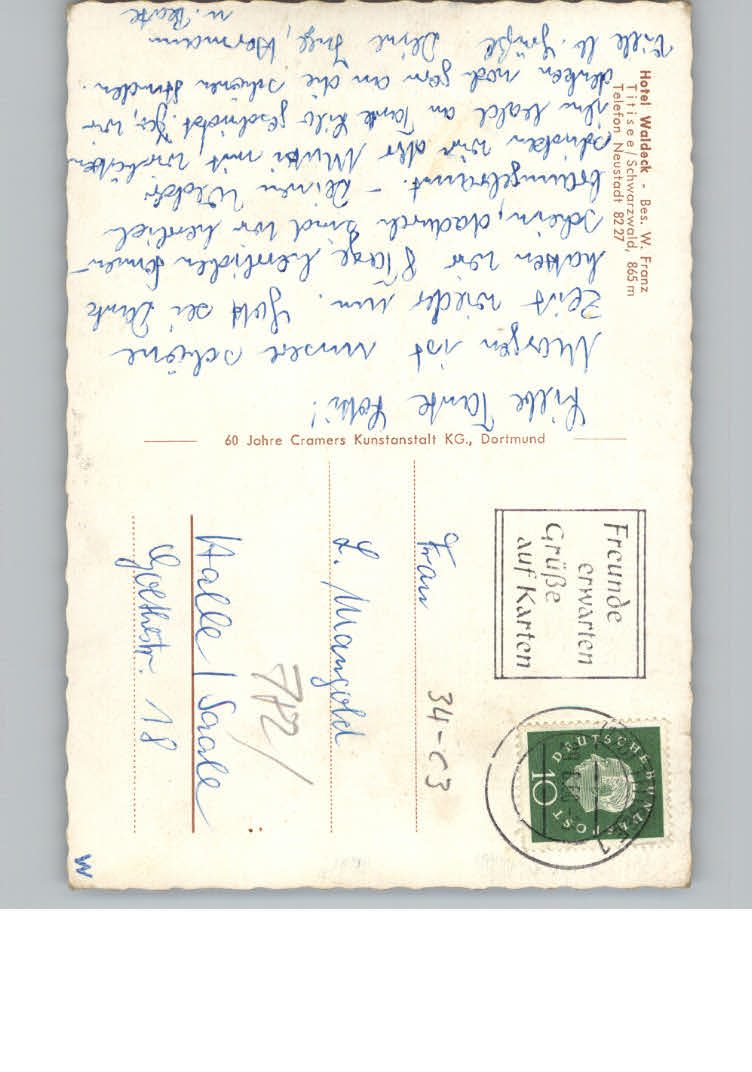 Hotel Waldeck - Bes. W. Franz
Titisee/Schwarzwald, 865 m
Telefon Neustadt 82 27
Liebe Tante Lotti!
Morgen ist unsere schöne
Zeit wieder um. Gott sei Dank
hatten wir 8 Tage herrlichen Sonnen-
schein, dadurch sind wir herrlich
braungebrannt. - Deinen
schicken wir aber Mutti mit,
ihn bald an Tante Lilo schickt. Ja, wir
denken noch gern an die schönen Stunden.
Viele lb. Grüße Deine Inge, Hermann
u. Beate
60 Jahre Cramers Kunstanstalt KG., Dortmund
Freunde
erwarten
Grüße
auf Karten
DEUTSCHE BUNDESPOST
10
Frau
L. Mangold
Halle / Saale
Goethestr. 18
34-C3
782/
W